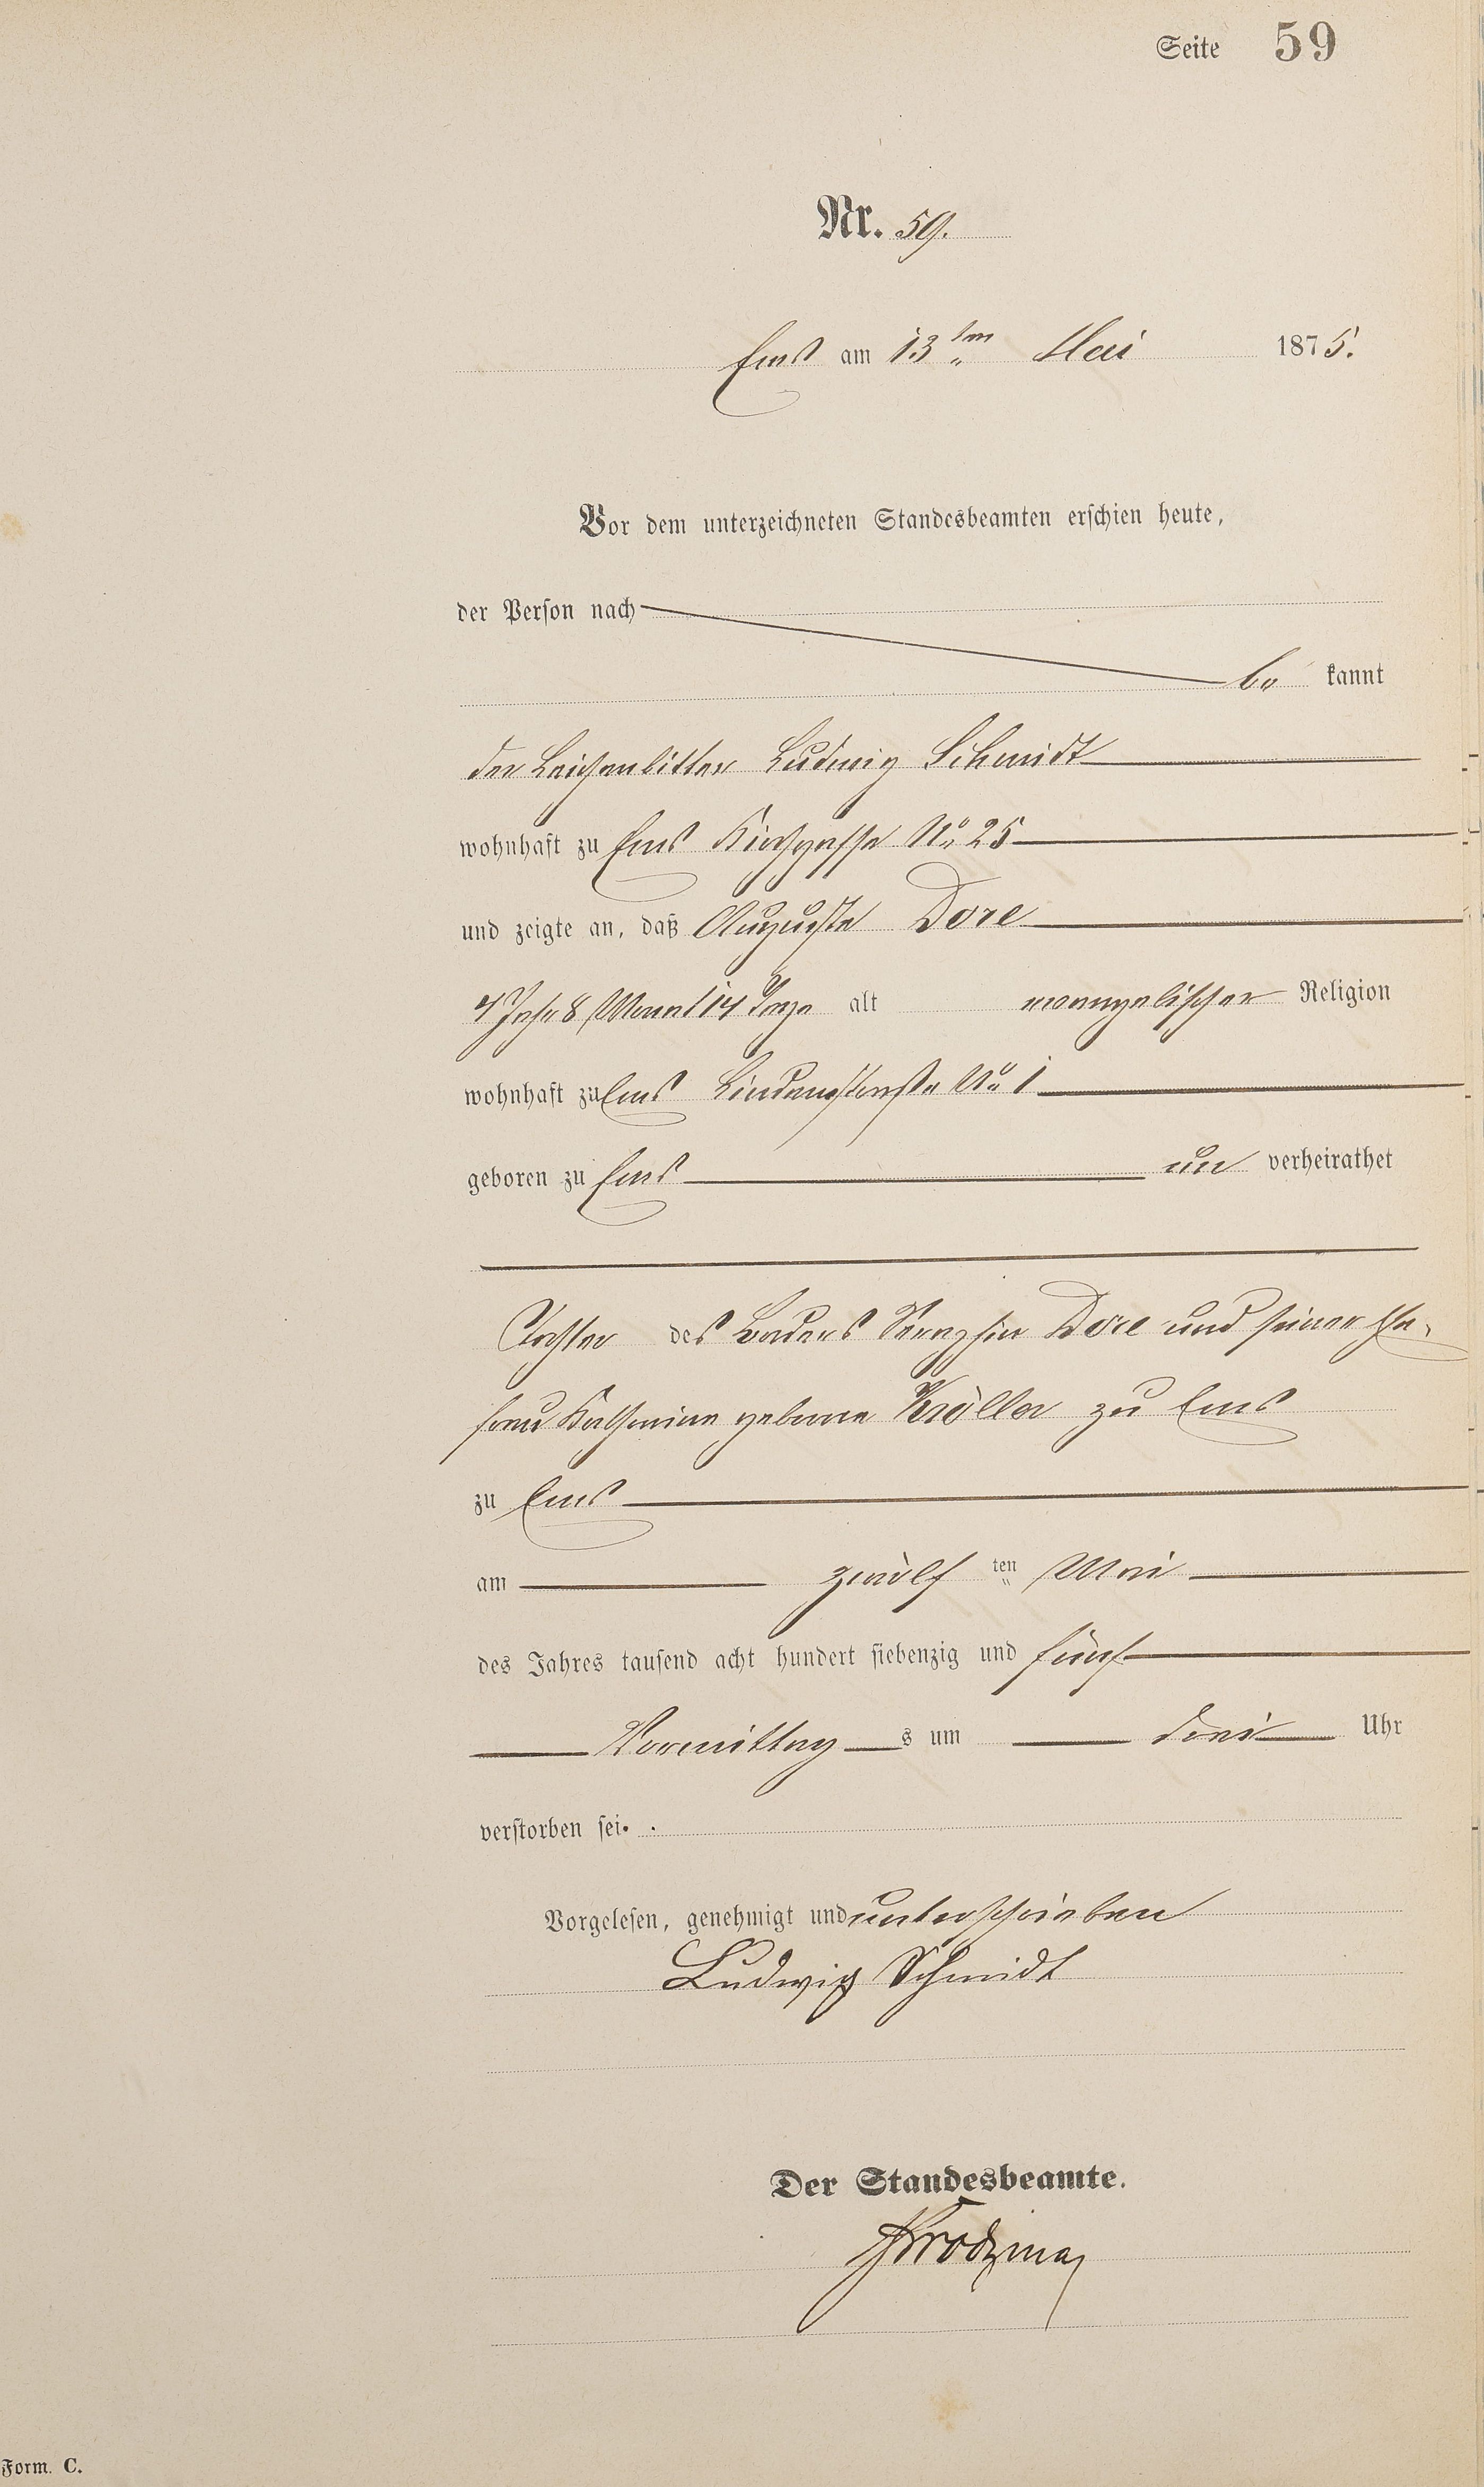 Seite 59
Nr. 59.
Ems am 13ten Mai 1875.
Vor dem unterzeichneten Standesbeamten erschien heute,
der Person nach
be kannt
der Leichenbitter Ludwig Schmidt
wohnhaft zu Ems Kirchgasse No 25
und zeigte an, daß Auguste Dore
4 Jahr 8 Monat 14 Tage alt evangelischer Religion
wohnhaft zu Ems Lindenstraße No 1
geboren zu Ems un verheirathet
Tochter des Baders Seraphin Dore und seiner Ehe-
frau Katharina geborne Kröller zu Ems
zu Ems
am zwölf ten Mai
des Jahres tausend acht hundert siebenzig und fünf
Vormittag s um drei Uhr
verstorben sei.
Vorgelesen, genehmigt und unterschrieben
Ludwig Schmidt
Der Standesbeamte.
Form. C.